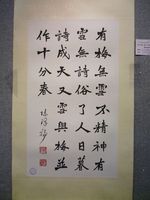 有梅無雪不精神有
雪無詩俗了人日暮
詩成天又雪與梅並
作十分春